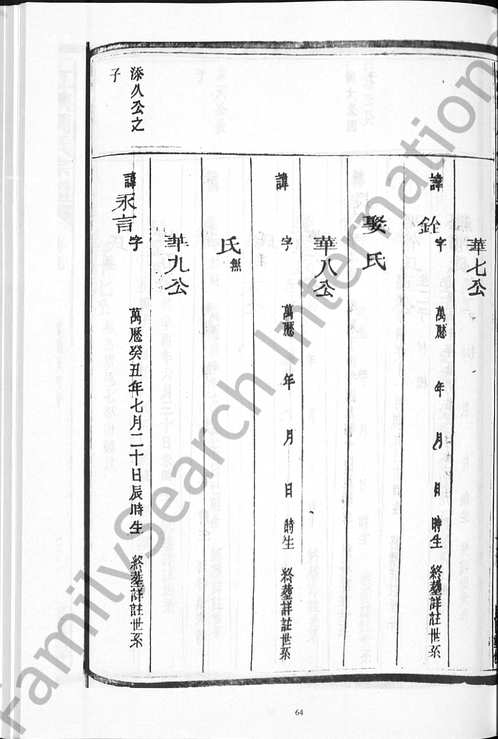 華七公
諱鈶字 萬曆 年 月 日 時生 終墓詳註世系
娶氏
華八公
諱 字 萬曆 年 月 日 時生 終墓詳註世系
氏無
華九公
諱永言字 萬曆癸丑年七月二十日辰時生 終墓詳註世系
添久公之
子
64
FamilySearch International